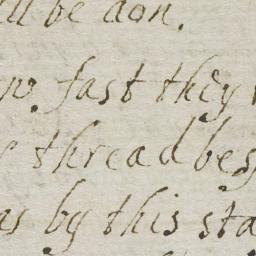 ll be don.
w fast they
thread bes
as by this sta